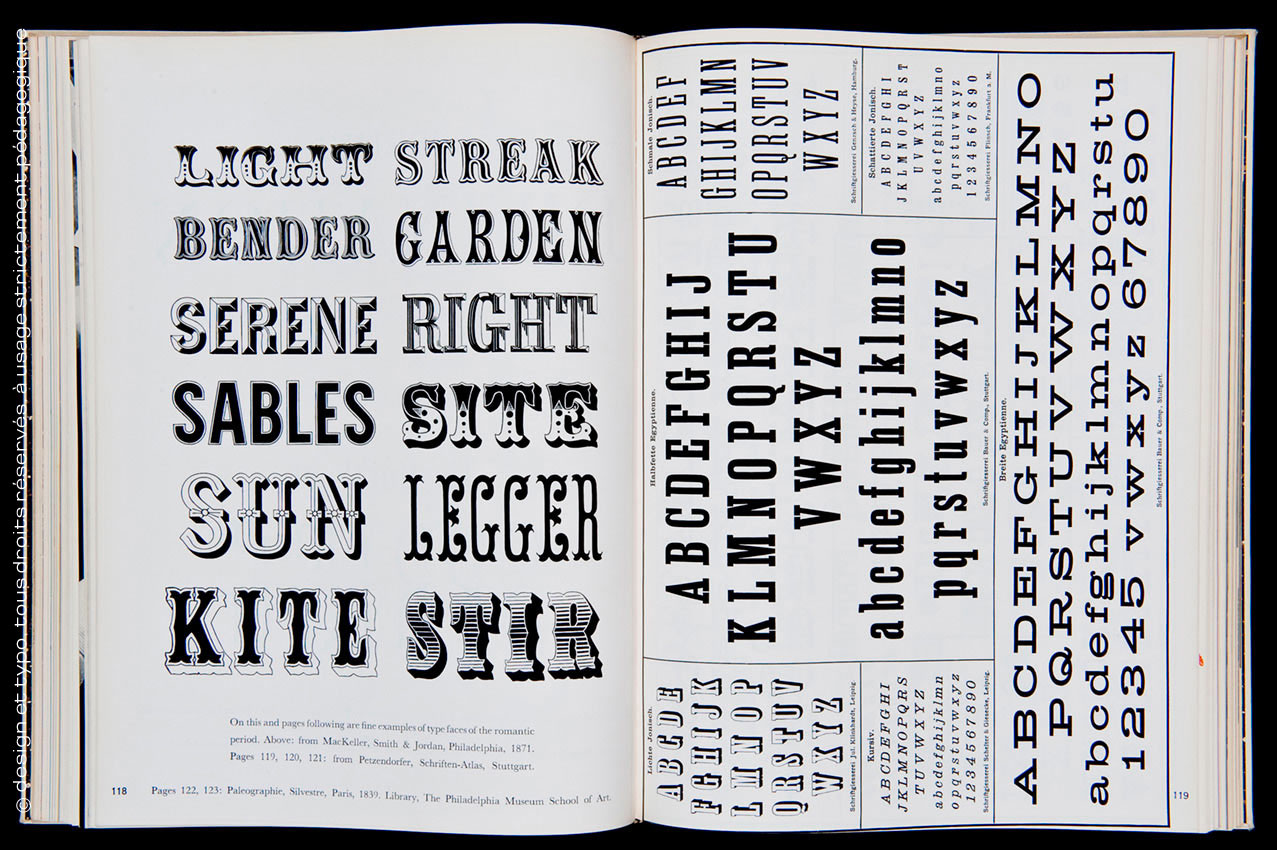 © design et typo, tous droits réservés à usage strictement pédagogique
LIGHT STREAK
BENDER GARDEN
SERENE RIGHT
SABLES SITE
SUN LEGGER
KITE STIR
On this and pages following are fine examples of type faces of the romantic
period. Above: from MacKeller, Smith & Jordan, Philadelphia, 1871.
Pages 119, 120, 121: from Petzendorfer, Schriften-Atlas, Stuttgart.
118 Pages 122, 123: Paleographie, Silvestre, Paris, 1839. Library, The Philadelphia Museum School of Art.
Lichte Jonisch.
ABCDE
FGHIJK
LMNOP
QRSTUV
WXYZ
Schriftgiesserei Jul. Klinkhardt, Leipzig.
Kursiv.
ABCDEFGHI
JKLMNOPQRS
TUVWXYZ
abcdefghijklmn
opqrstuvwxyz
1234567890
Schriftgiesserei Schelter & Giesecke, Leipzig.
Halbfette Egyptienne.
ABCDEFGHIJ
KLMNOPQRSTU
VWXYZ
abcdefghijklmno
pqrstuvwxyz
Schriftgiesserei Bauer & Comp., Stuttgart.
Schmale Jonisch.
ABCDEF
GHIJKLMN
OPQRSTUV
WXYZ
Schriftgiesserei Genzsch & Heyse, Hamburg.
Schattierte Jonisch.
ABCDEFGHI
JKLMNOPQRST
UVWXYZ
abcdefghijklmno
pqrstuvwxyz
1234567890
Schriftgiesserei Flinsch, Frankfurt a. M.
Breite Egyptienne.
ABCDEFGHIJKLMNO
PQRSTUVWXYZ
abcdefghijklmnopqrstu
12345 vwxyz 67890
Schriftgiesserei Bauer & Comp., Stuttgart.
119